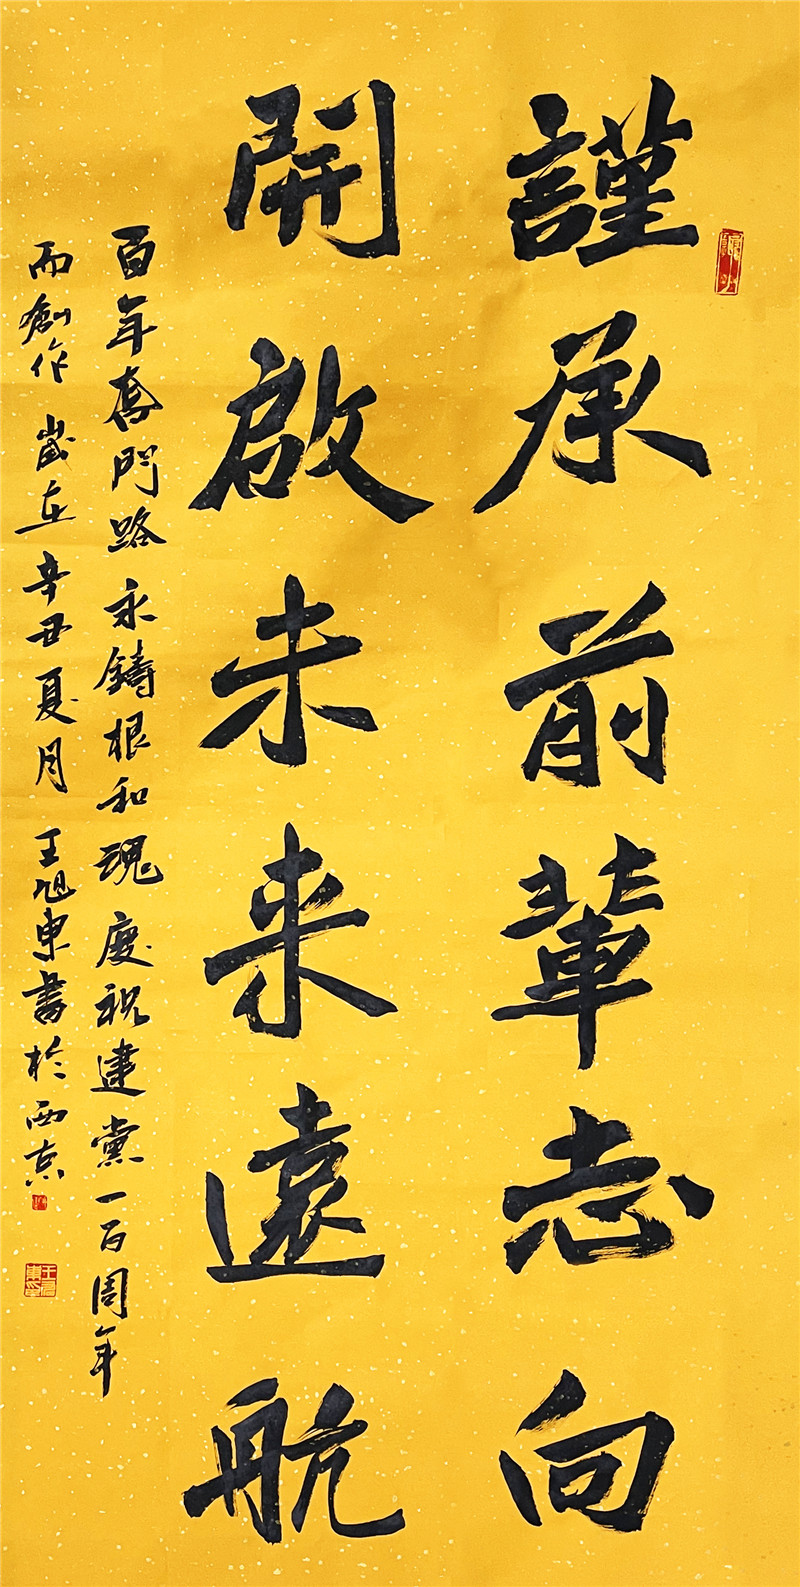 謹承前輩志向
開啟未来遠航
百年奮鬥路永鑄根和魂慶祝建黨一百周年
而創作歲在辛丑夏月王旭東書於西京